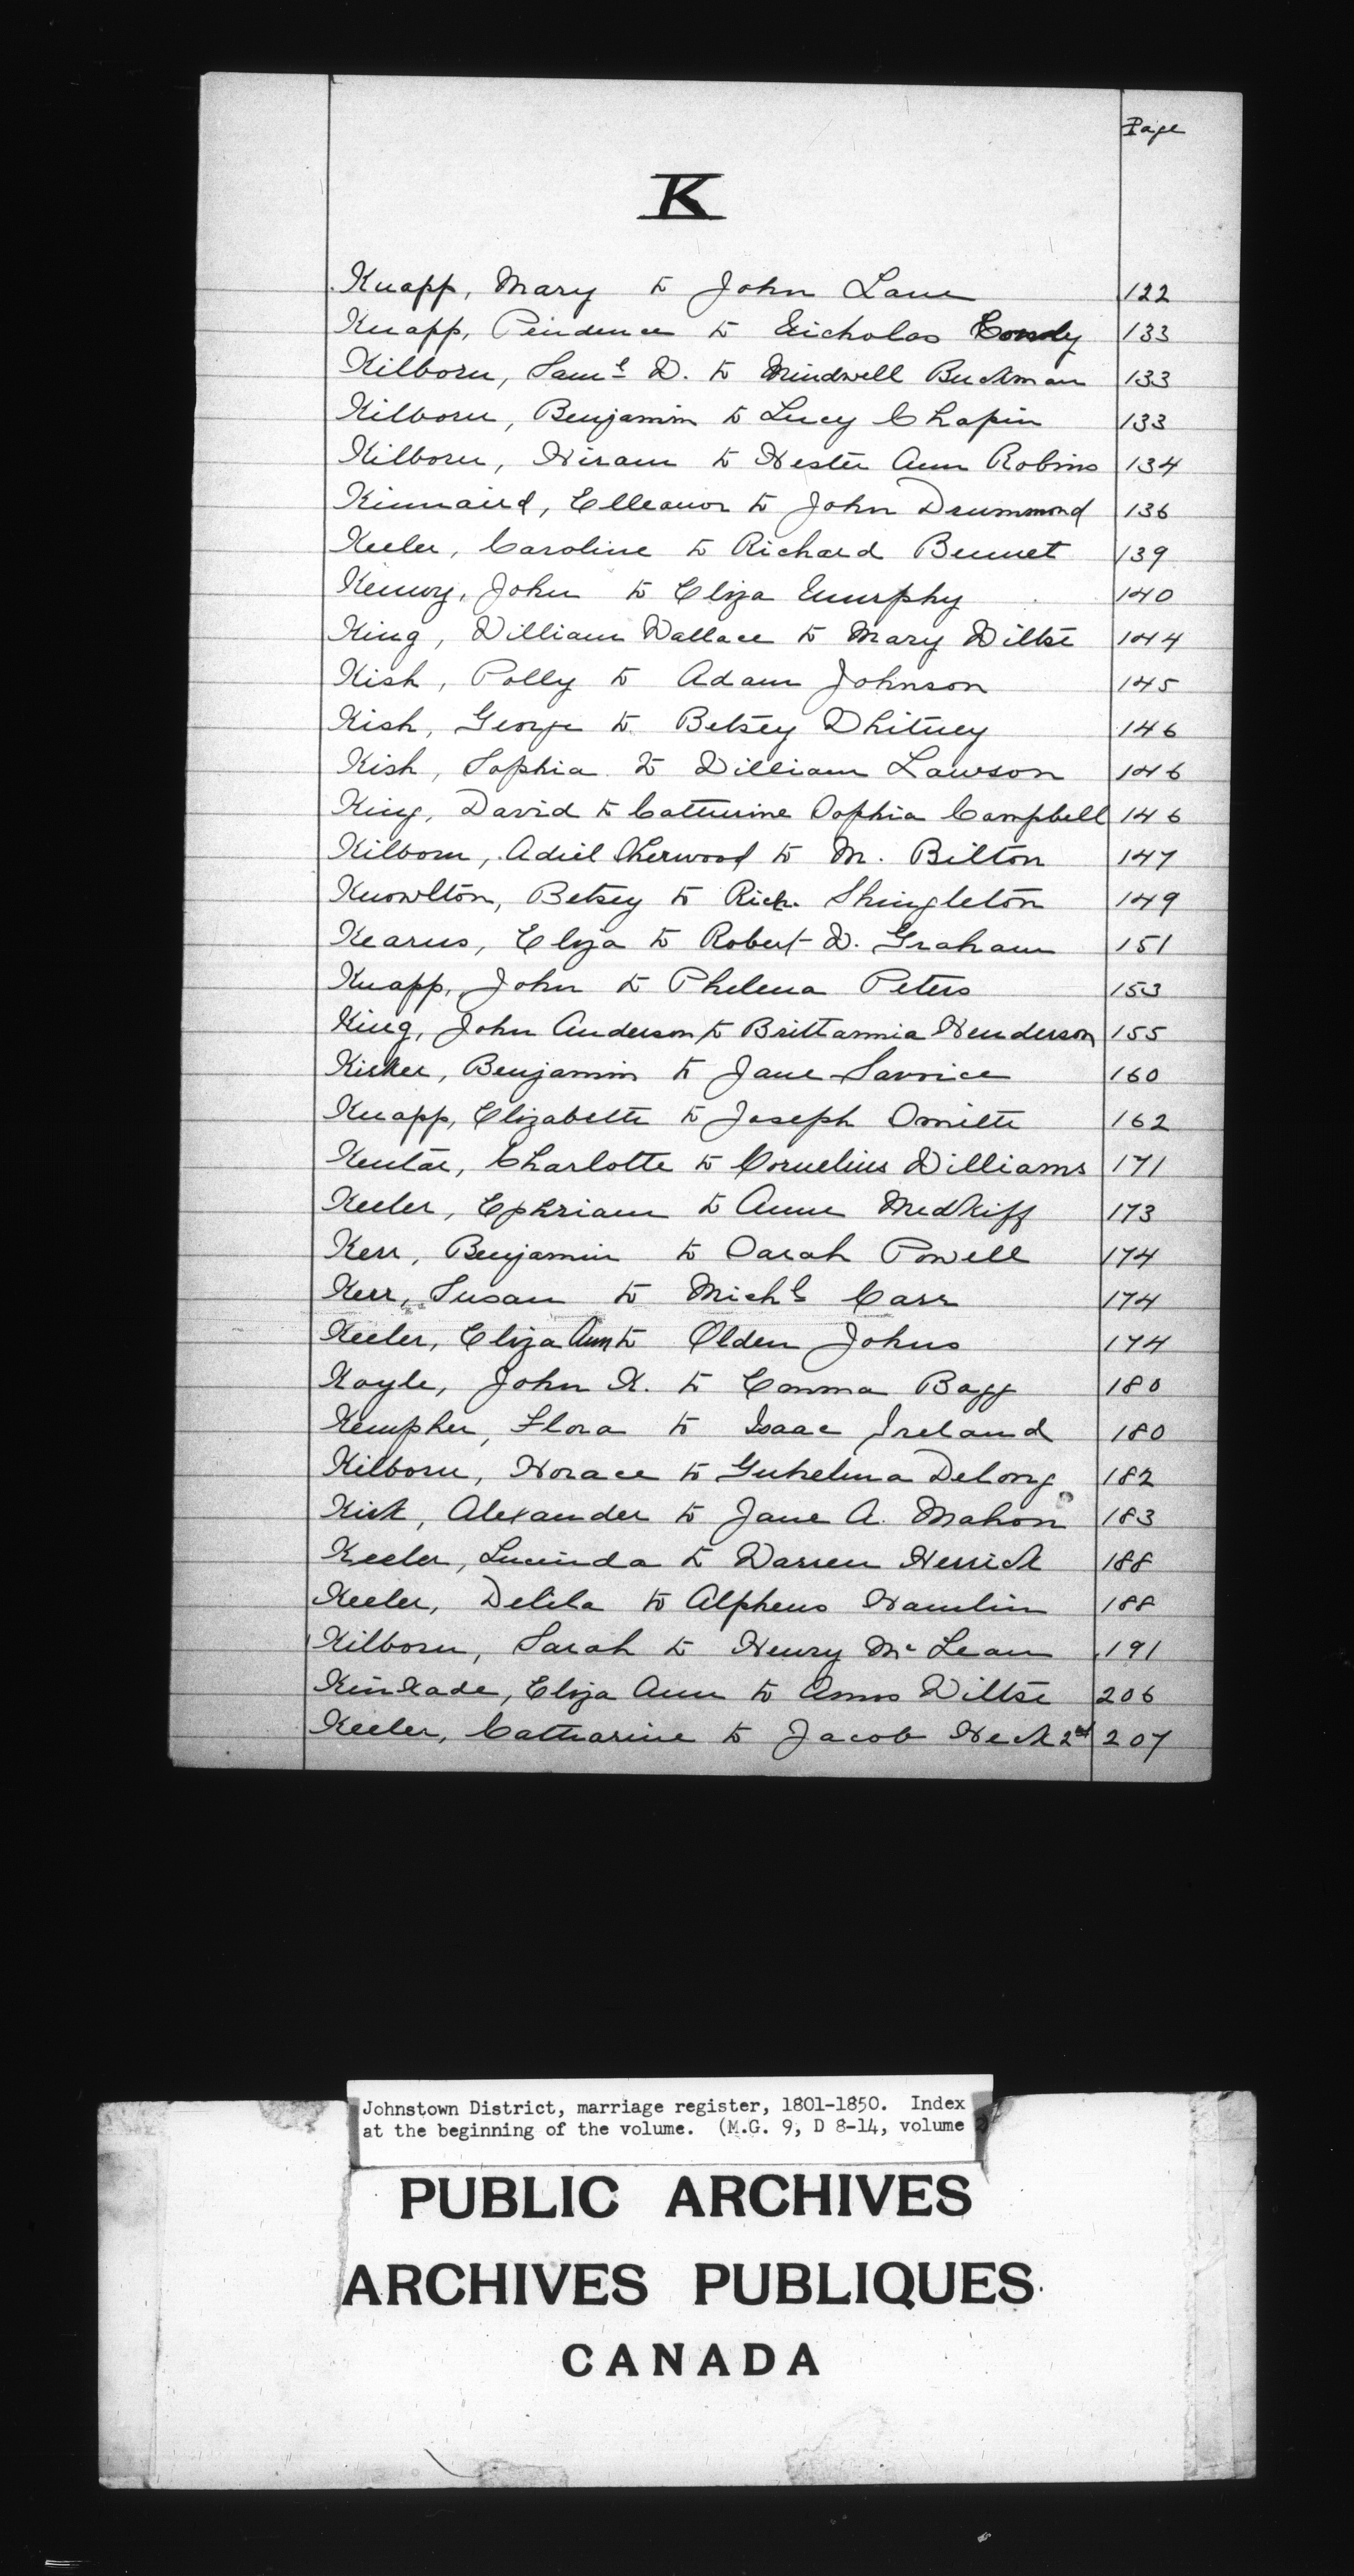 Page
K
Knapp, Mary to John Lane 122
Knapp, Prudence to Nicholas Condy 133
Kilborn, Saml D. to Mindwell Buckman 133
Kilborn, Benjamin to Lucy Chapin 133
Kilborn, Hiram to Hester Ann Robins 134
Kinnaird, Elleanor to John Drummond 136
Keeler, Caroline to Richard Bennet 139
Kenny, John to Eliza Murphy 140
King, William Wallace to Mary Wiltse 144
Kish, Polly to Adam Johnson 145
Kish, George to Betsey Whitney 146
Kish, Sophia to William Lawson 146
King, David to Catherine Sophia Campbell 146
Kilborn, Adiel Sherwood to M. Bilton 147
Knowlton, Betsey to Rich. Shingleton 149
Kearns, Eliza to Robert W. Graham 151
Knapp, John to Phelena Peters 153
King, John Anderson to Brittannia Henderson 155
Kisker, Benjamin to Jane 160
Knapp, Elizabeth to Joseph Smith 162
Charlotte to Cornelius Williams 171
Keeler, Ephriam to Anne Medkiff 173
Kerr, Benjamin to Sarah Powell 174
Kerr, Susan to Michl Carr 174
Keeler, Eliza Ann to Olden Johns 174
Koyle, John K. to Emma Bagg 180
Kempher, Flora to Isaac Ireland 180
Kilborn, Horace to Delong 182
Kirk, Alexander to Jane A. Mahon 183
Keeler, Lucinda to Warren Herrick 188
Keeler, Delila to Alpheus Hamlin 188
Kilborn, Sarah to Henry McLean 191
Kinkade, Eliza Ann to Amos Wiltse 206
Keeler, Catharine to Jacob Heck 2nd 207
Johnstown District, marriage register, 1801-1850. Index
at the beginning of the volume. (M.G. 9, D 8-14, volume
PUBLIC ARCHIVES
ARCHIVES PUBLIQUES
CANADA